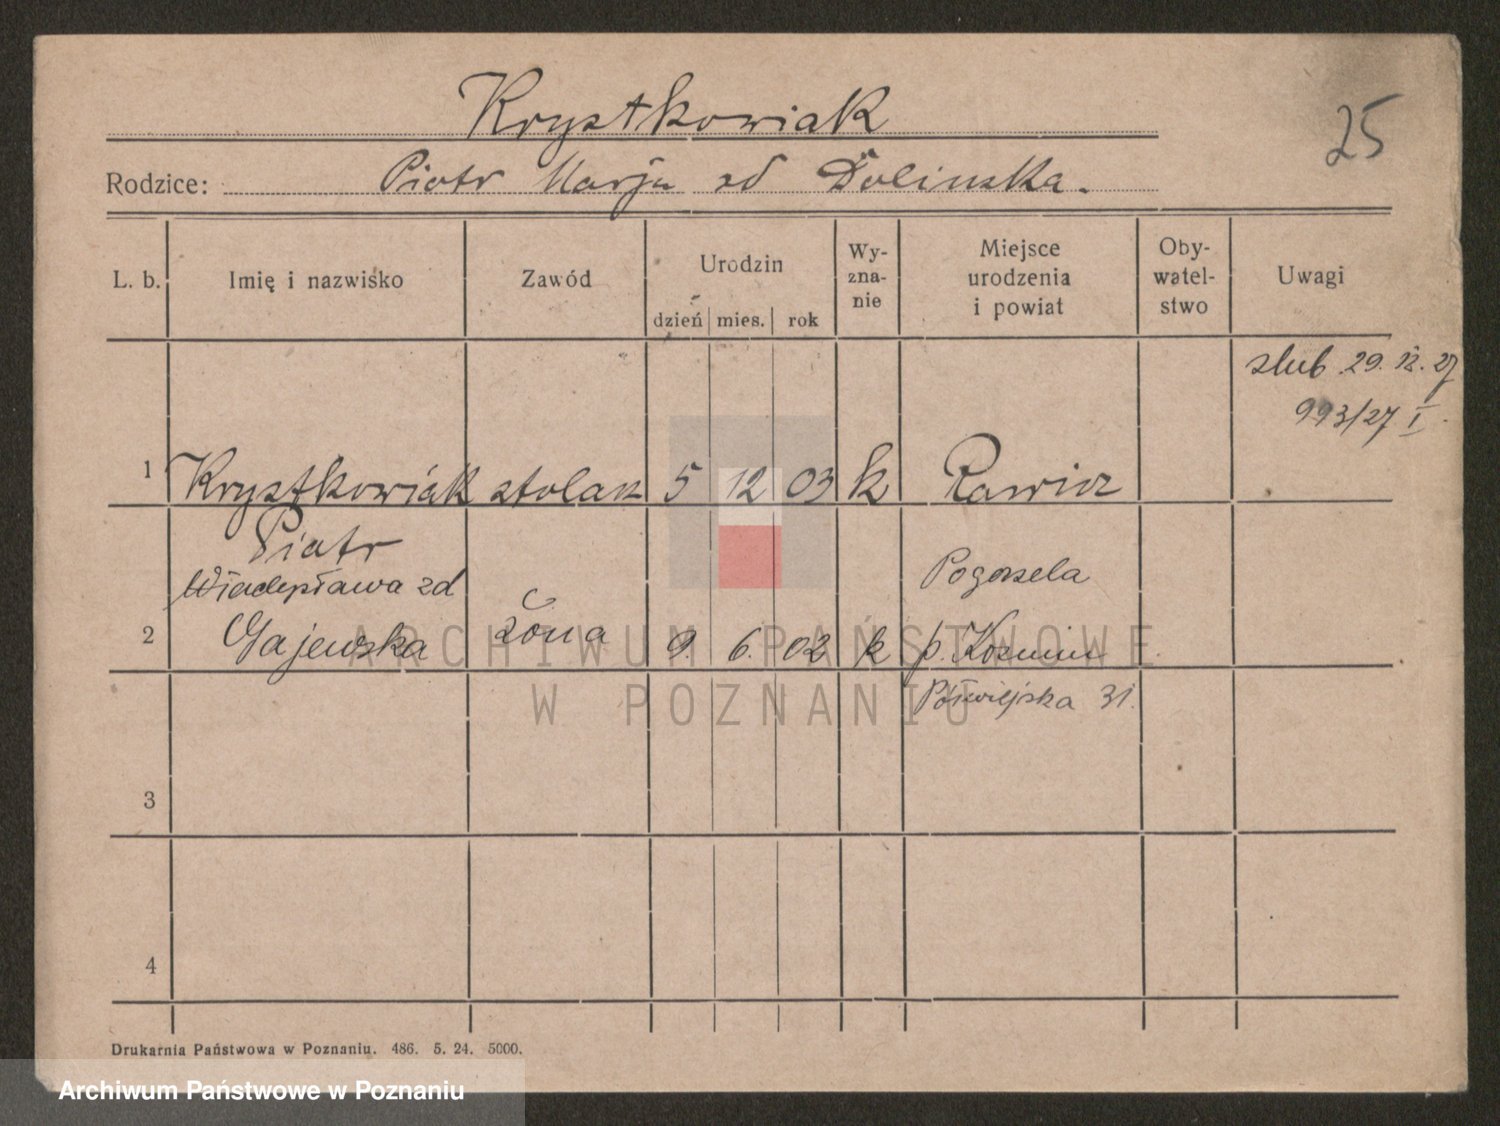 Krystkowiak
25
Rodzice: Piotr Marja zd Dolinska.
L. b. Imię i nazwisko Zawód Urodzin dzień mies. rok Wy-zna-nie Miejsce urodzenia i powiat Oby-watel-stwo Uwagi
slub 29. 12. 27
993/27 I.
1 Krystkowiak stolarz 5 12 03 k Rawicz
Piotr
Władysława zd Pogorzela
2 Gajewska żona 9. 6. 02 k p. Koźmin
Półwiejska 31.
3
4
Drukarnia Państwowa w Poznaniu. 486. 5. 24. 5000.
ARCHIWUM PAŃSTWOWE
W POZNANIU
Archiwum Państwowe w Poznaniu